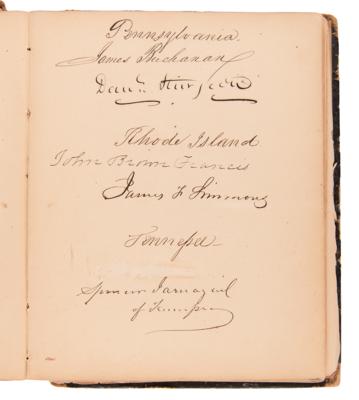 Pennsylvania
James Buchanan
Danl. Sturgeon
Rhode Island
John Brown Francis
James F Simmons
Tennessee
Spencer Jarnagin
of Tennessee